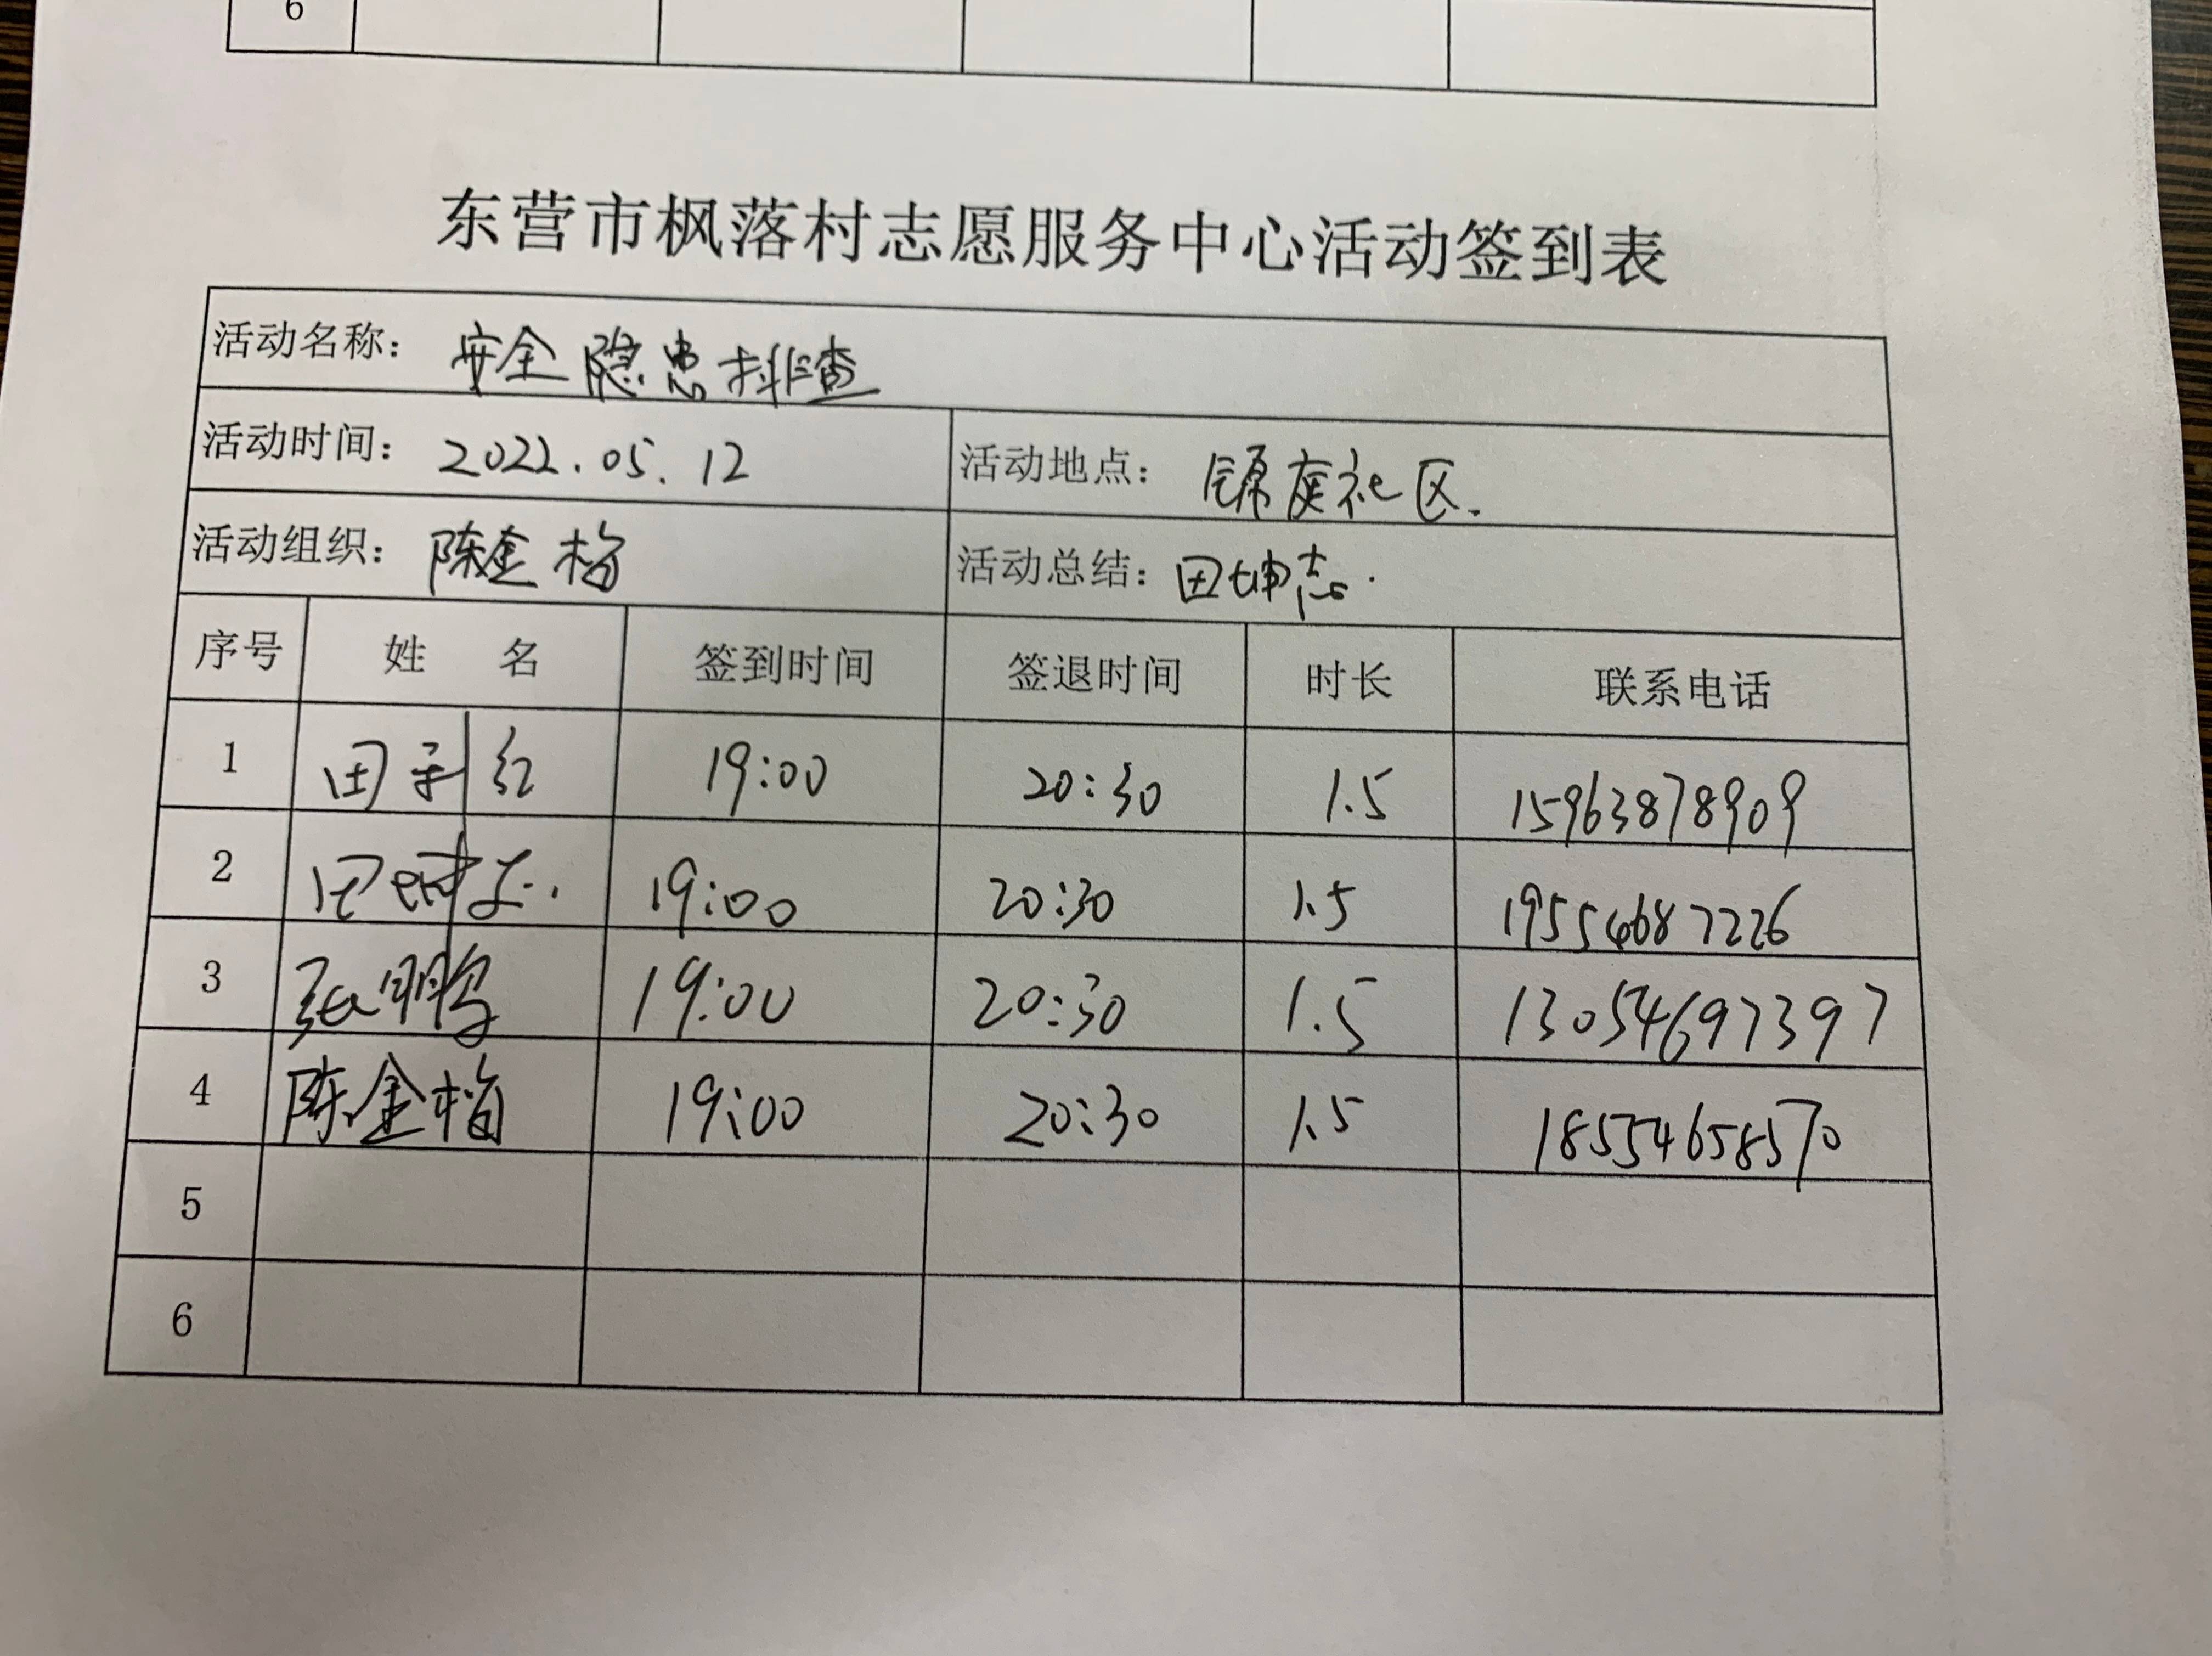 6
东营市枫落村志愿服务中心活动签到表
活动名称： 安全隐患排查
活动时间： 2022.05.12 活动地点： 社区.
活动组织： 陈金梅 活动总结： 田坤志.
序号 姓 名 签到时间 签退时间 时长 联系电话
1 田利红 19:00 20:30 1.5 15963878909
2 田坤志. 19:00 20:30 1.5 19554687226
3 张鹏 19:00 20:30 1.5 13054697397
4 陈金梅 19:00 20:30 1.5 18554658570
5
6